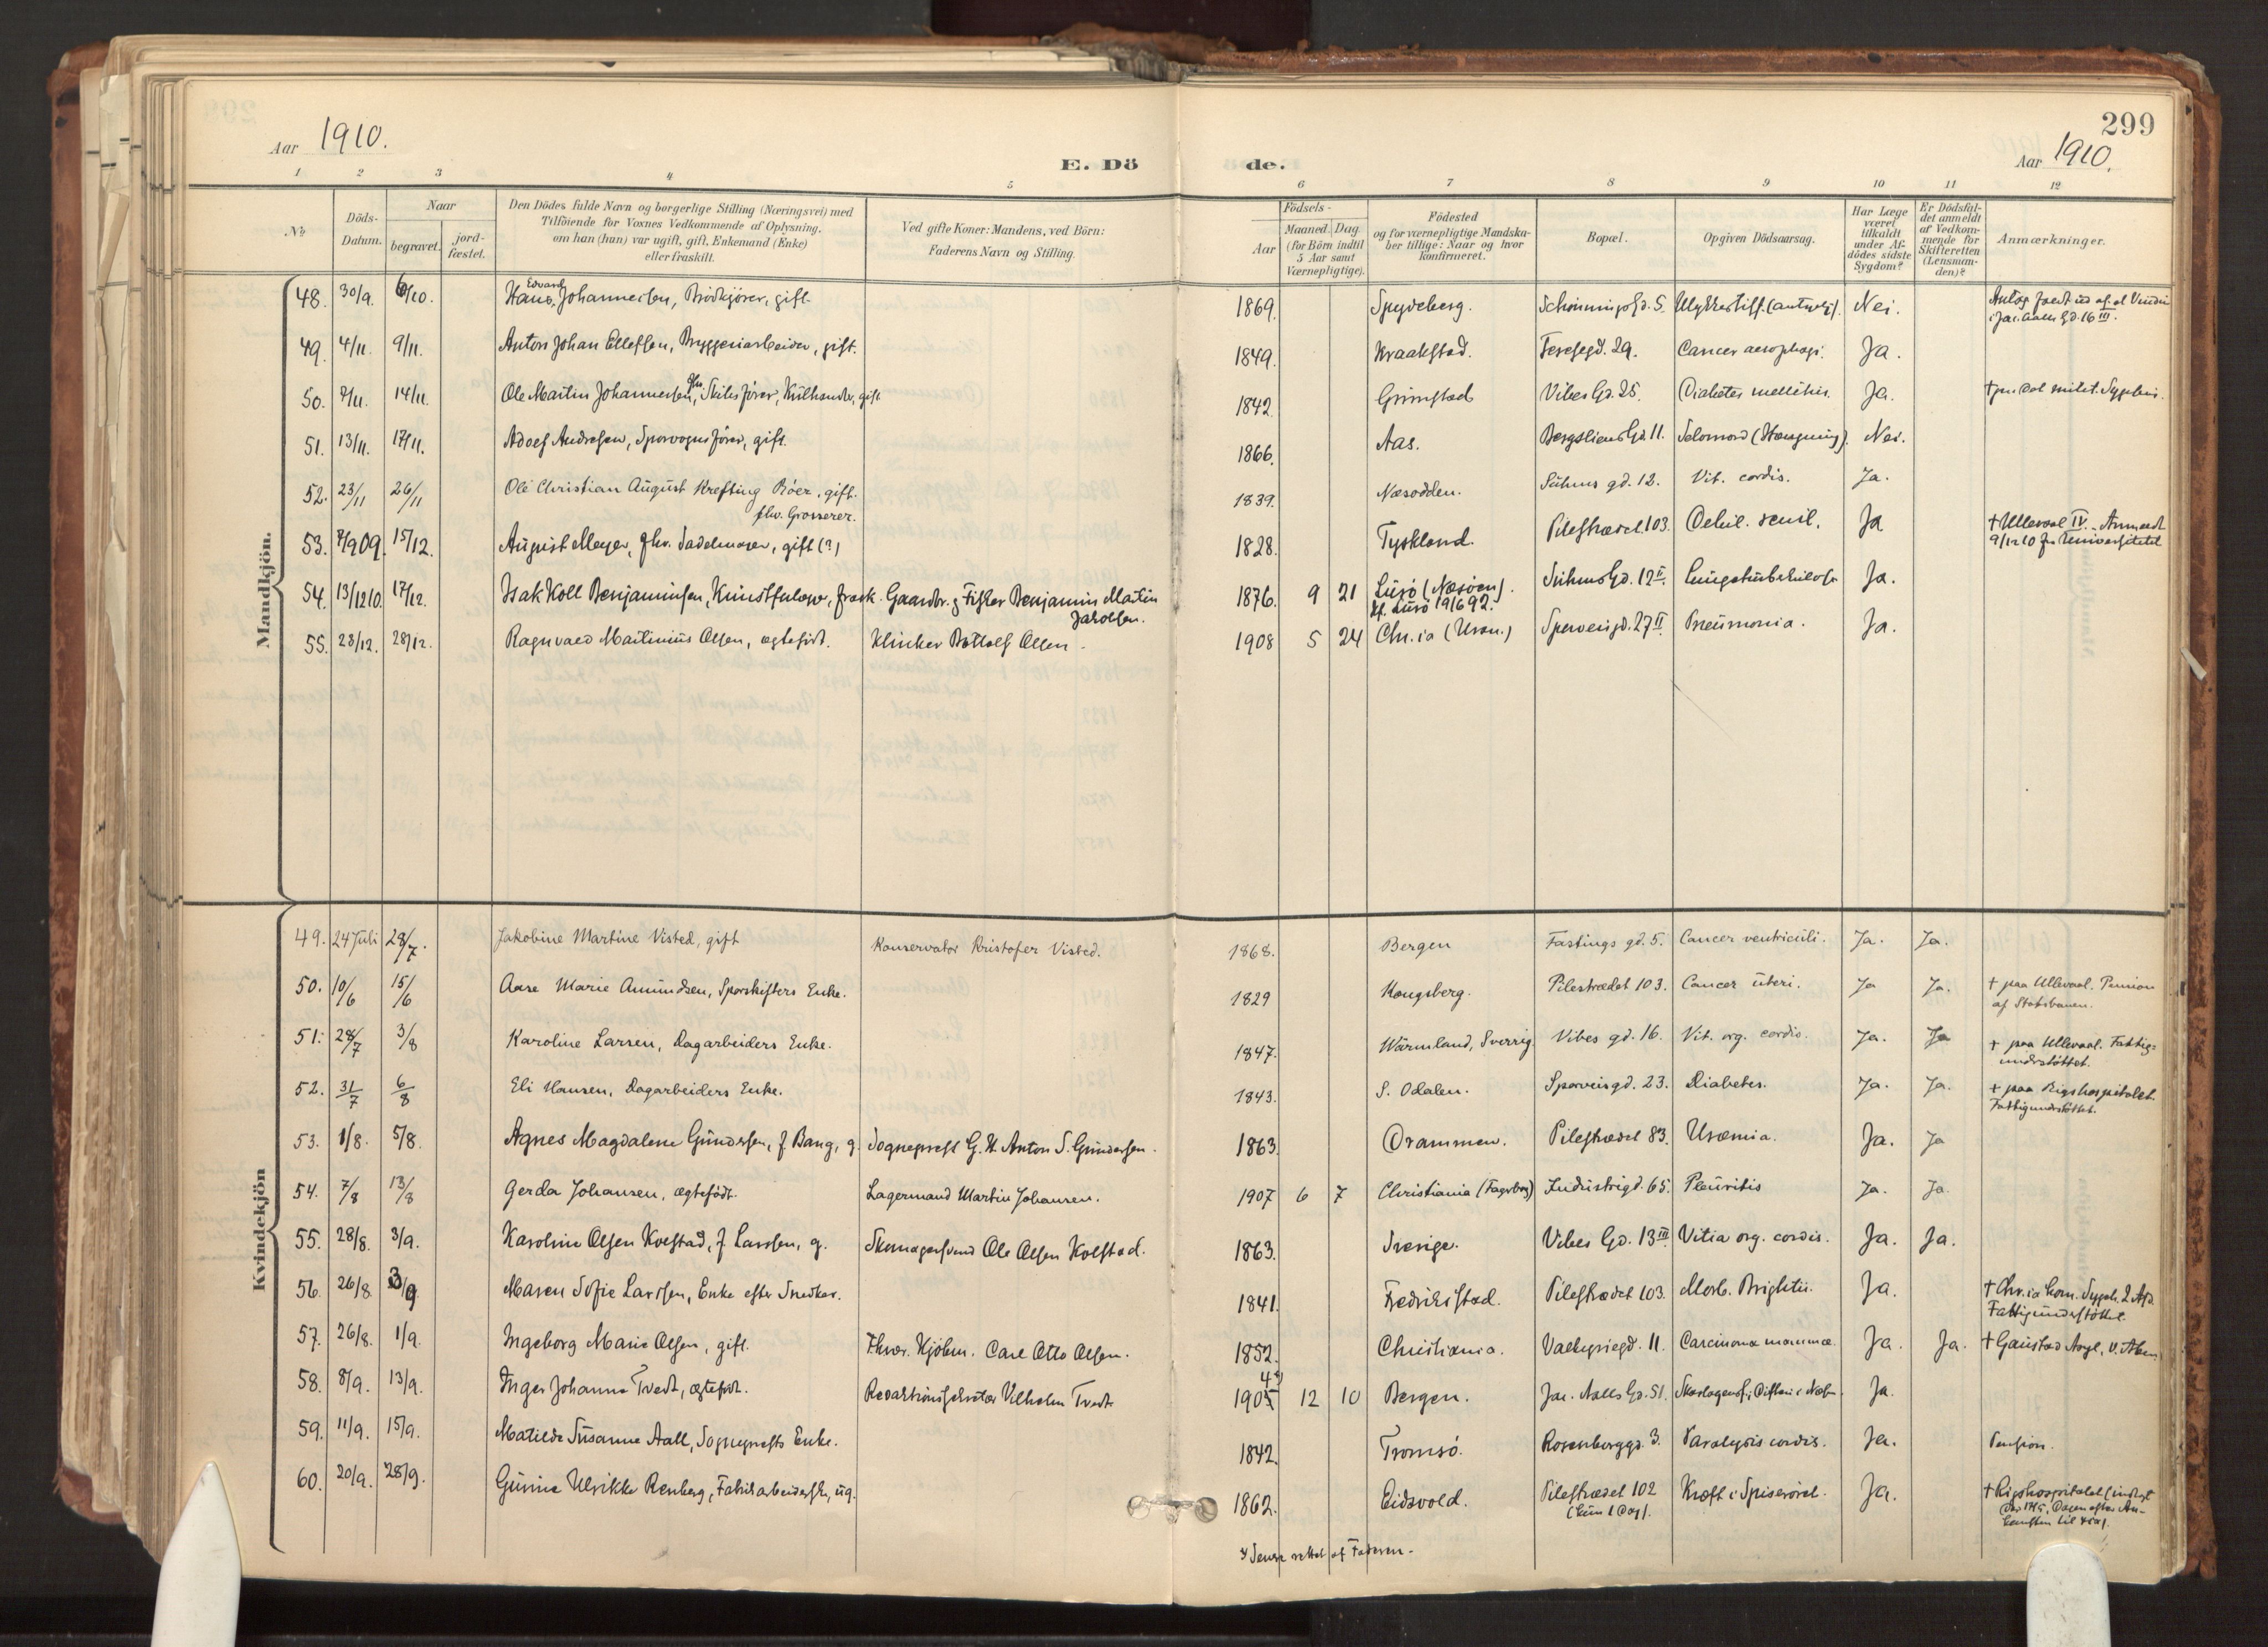 299
Aar 1910.
E. Dö de.
Aar 1910.
1 2 3 4 5 6 7 8 9 10 11 12
No
Döds-Datum.
Naar
begravet.
jord-fæstet.
Den Dödes fulde Navn og borgerlige Stilling (Næringsvei) med
Tilföiende for Voxnes Vedkommende af Oplysning,
om han (hun) var ugift, gift, Enkemand (Enke)
eller fraskilt.
Ved gifte Koner: Mandens, ved Börn:
Faderens Navn og Stilling.
Födsels-
Aar
Maaned. Dag.
(for Börn indtil
5 Aar samt
Værnepligtige).
Födested
og for værnepligtige Mandska-
ber tillige: Naar og hvor
konfirmeret.
Bopæl.
Opgiven Dödsaarsag.
Har Læge
været
tilkaldt
under Af-
dödes sidste
Sygdom?
Er Dödsfal-
det anmeldt
af Vedkom-
mende for
Skifteretten
(Lensman-
den)?
Anmærkninger.
Mandkjön.
48. 30/9. 6/10. Hans Edvard Johannessen, Brödkjörer, gift. 1869. Spydeberg. Schönnings Gd. 5. Nei.
49. 4/11. 9/11. Anton Johan Ellefsen, Bryggeriarbeider, gift. 1849. Kraakstad. Teresegd. 29. Cancer aesophagi. Ja.
50. 7/11. 14/11. Ole Martin Johannessen, fhv. Skibsförer, Kulhandler, gift 1842. Grimstad Vibes Gd. 25. Diabetes mellitus. Ja.
51. 13/11. 17/11. Adolf Andresen, Sporvognsförer, gift. 1866. Aas. Bergsliens Gd. 11. Selvmord (Hængning). Nei.
52. 23/11 26/11 Ole Christian August Krefting Böer, gift.
fhv. Grosserer. 1839. Næsodden. Suhms gd. 12. Vit. cordis. Ja.
53. 7/9 09. 15/12. August Meyer, fhv. Sadelmager, gift (?) 1828. Tyskland. Pilestrædet 103. Debil. senil. Ja † Ullevaal IV. Anmeldt
9/12 10 fra Universitetet
54. 13/12 10. 17/12. Isak Koll Benjaminsen, frask. Gaardbr. og Fisker Benjamin Martin
Jakobsen. 1876. 9 21 Lurö (Næsöen).
Kf. Lurö 19/6 92. Suhms Gd. 12 II. Lungetuberkulose Ja.
55. 23/12. 28/12. Ragnvald Martinius Olsen, ægtefödt. Klinker Botolf Olsen. 1908 5 24 Chr.ia (Uran.) Sporveisgd. 27 II. Pneumonia. Ja.
Kvindekjön
49. 24 Juli 28/7. Jakobine Martine Visted, gift Konservator Kristofer Visted. 1868. Bergen Fastings gd. 5. Cancer ventriculi. Ja. Ja.
50. 10/6 15/6 Aase Marie Amundsen, Sporskifters Enke. 1829 Kongsberg. Pilestrædet 103. Cancer uteri. Ja Ja. † paa Ullevaal. Pension
af Statsbanen.
51. 28/7 3/8 Karoline Larsen, Dagarbeiders Enke. 1847. Wärmland, Sverrig. Vibes gd. 16. Vit. org. cordis. Ja. Ja † paa Ullevaal. Fattig-
understöttet.
52. 31/7 6/8 Eli Hansen, Dagarbeiders Enke. 1843. S. Odalen. Sporveisgd. 23. Diabetes. Ja. Ja. † paa Rigshospitalet.
Fattigunderstöttet.
53. 1/8. 5/8. Agnes Magdalene Gundersen, f. Bang, g. Sogneprest G. H. Anton S. Gundersen. 1863. Drammen. Pilestrædet 83. Uræmia. Ja. Ja
54. 7/8 13/8 Gerda Johansen, ægtefödt. Lagermand Martin Johansen. 1907 6 7 Christiania (Fagerborg) Industrigd. 65. Pleuritis Ja. Ja.
55. 28/8. 3/9. Karoline Olsen Kolstad, f. Larssen, g. Skomagersvend Ole Olsen Kolstad. 1863. Sverige. Vibes Gd. 13 III. Vitia org. cordis. Ja. Ja.
56. 26/8. 3/9 Maren Sofie Larssen, Enke efter Snedker. 1841. Fredrikstad. Pilestrædet 103. Morb. Brightii. Ja. † Chr.ia kom. Sygeh. 2 Afd.
Fattigunderstöttet.
57. 26/8. 1/9. Ingeborg Marie Olsen, gift. Fhv. Kjöbm. Carl Otto Olsen. 1852. Christiania. Valkyriegd. 11. Carcinoma mammæ. Ja. Ja. † Gaustad Asyl, V. Aker.
58. 8/9. 13/9. Inger Johanne Tvedt, ægtefödt. Redaktionssekretær Vilhelm Tvedt 1905 4*) 12 10 Bergen. Jac. Aalls Gd. 51. Ja.
59. 11/9. 15/9. Matilde Susanne Aall, Sogneprests Enke. 1842. Tromsö. Rosenborggd. 3. Paralysis cordis. Ja. Pension.
60. 20/9. 28/9. Gunine Ulrikke Renberg, Fabrikarbeiderske, ug. 1862. Eidsvold. Pilestrædet 102
(kun 1 Dag). Kræft i Spiseröret. Ja. † Rigshospitalet
*) Senere rettet af Faderen.